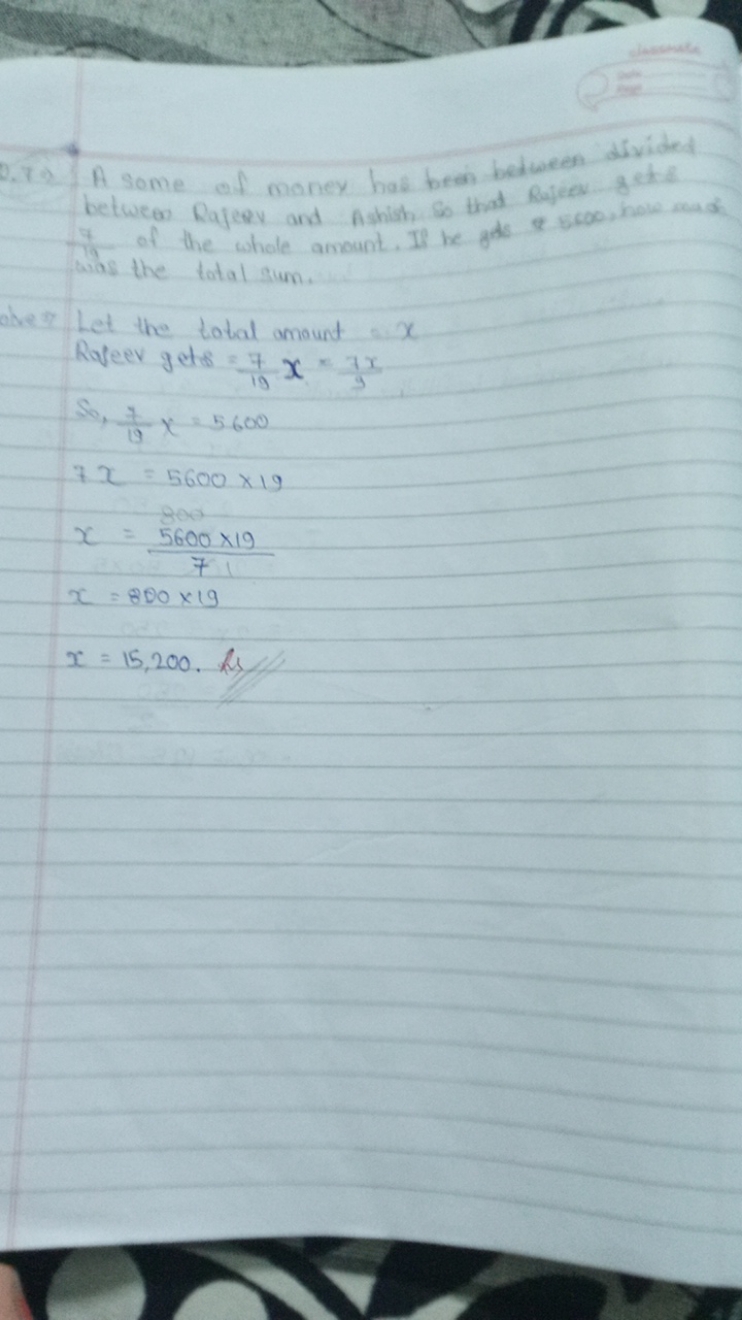 classmate
Date
Page
A some of money has been between divided
between Rajeev and Ashish So that Rajeev gets
7/19 of the whole amount. If he gets ₹ 5600, how much
was the total sum.
Let the total amount = x
Rajeev gets = 7/19 x = 7x/9
So, 7/19 x = 5600
7x = 5600 × 19
800
x = 5600 × 19 / 7 1
x = 800 × 19
x = 15,200. Rs